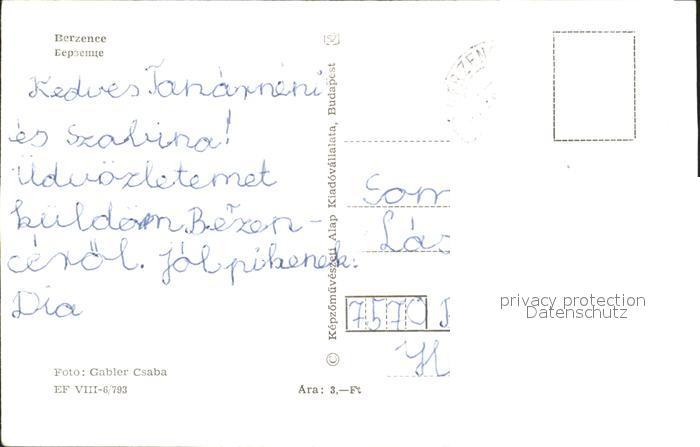 Berzence
Берзенце
Kedves Tanárnéni
és Szabina!
Üdvözletemet
küldöm Bežen-
céről. Jól pihenek.
Dia
Foto: Gabler Csaba
EF VIII-6/793
Ára: 3,—Ft
© Képzőművészeti Alap Kiadóvállalata, Budapest
RZEN
Som
Lás
7570
privacy protection
Datenschutz